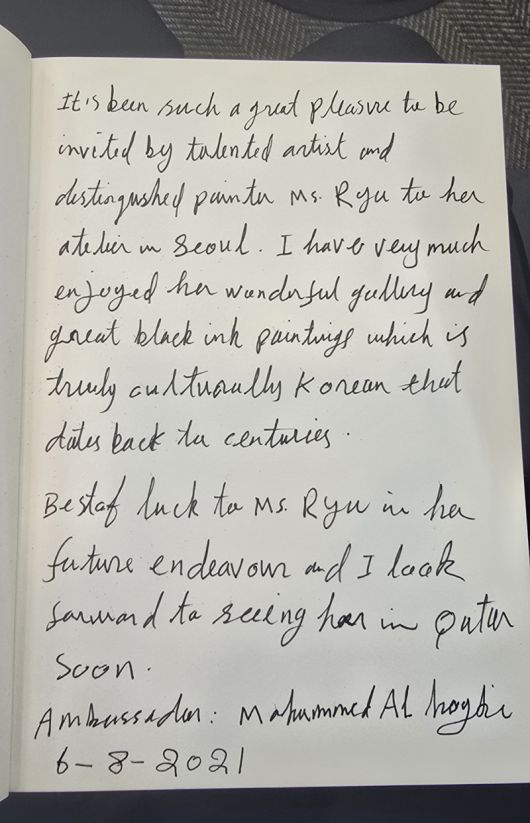 It's been such a great pleasure to be
invited by talented artist and
distingushed painter Ms. Ryu to her
atelier in Seoul. I have very much
enjoyed her wonderful gallery and
great black ink paintings which is
truely culturally Korean that
dates back to centuries.
Best of luck to Ms. Ryu in her
future endeavour and I look
forward to seeing her in Qatar
soon.
Ambassador: Mohammed Al
6-8-2021